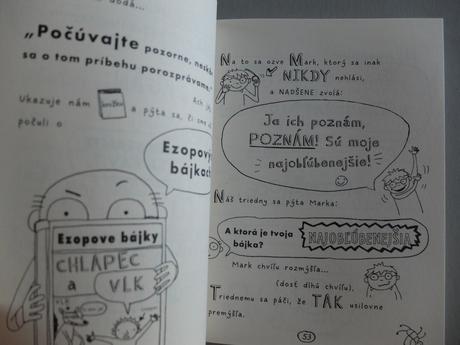 dodá...
„Počúvajte pozorne, neskôr
sa o tom príbehu porozprávame."
Ach
Ukazuje nám
a pýta sa, či sme
počuli o
Ezopových
bájkach
Ezopove bájky
CHLAPEC
a VLK
VLK
Na to sa ozve Mark, ktorý sa inak
NIKDY nehlási,
a NADŠENE zvolá:
Ja ich poznám,
POZNÁM! Sú moje
najobľúbenejšie!
Náš triedny sa pýta Marka:
A ktorá je tvoja
bájka?
NAJOBĽÚBENEJŠIA
Mark chvíľu rozmýšľa...
(dosť dlhú chvíľu).
Triednemu sa páči, že TAK usilovne
premýšľa.
53